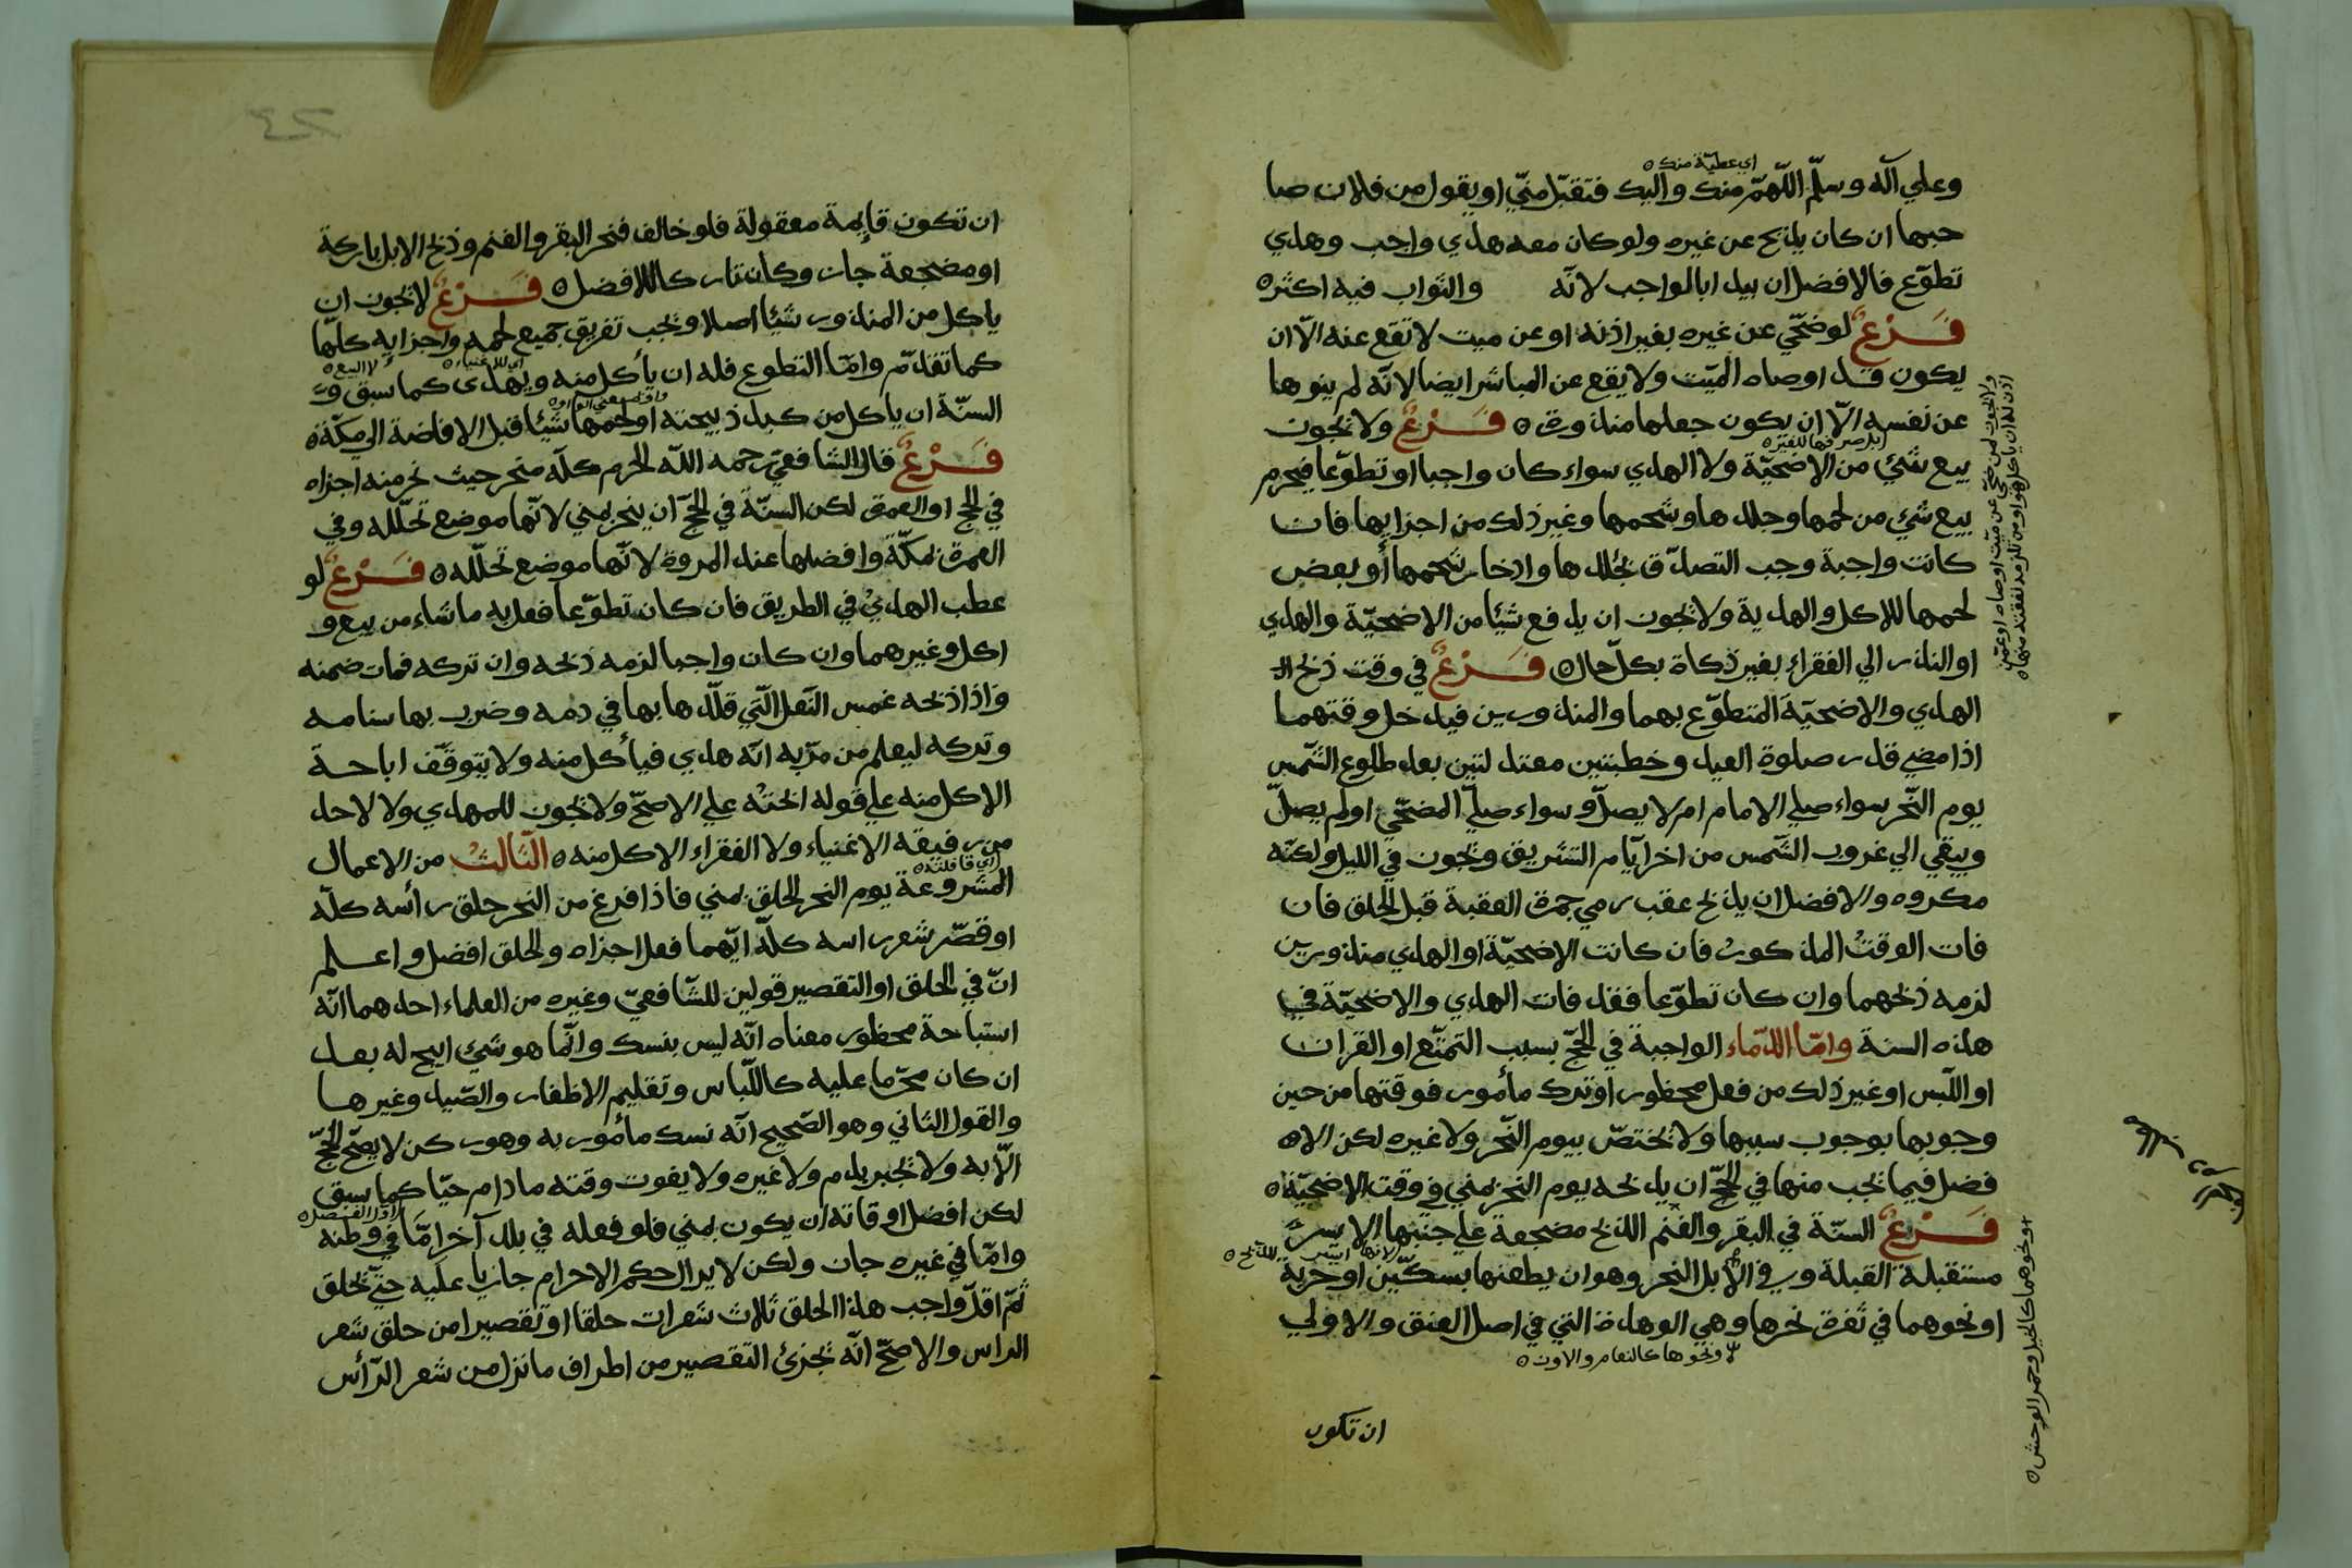 وعلي آله وسلّم اللّهمّ منك واليك فتقبّل منّي او يقول من فلان صا
اي عطيّة منك ه
حبها ان كان يذبح عن غيره ولو كان معه هدي واجب وهدي
تطوّع فالافضل ان يبدا بالواجب لانّه والثواب فيه اكثر ه
فَرْعٌ لو ضحّي عن غيره بغير اذنه او عن ميت لا تقع عنه الّا ان
يكون قد اوصاه الميّت ولا يقع عن المباشر ايضا لانّه لم ينوها
عن نفسه الّا ان يكون جعلها منذورة ه فَرْعٌ ولا يجوز
بيع شئ من الاضحيّة ولا الهدي سواء كان واجبا او تطوّعا فيحرم
بيع شئ من لحمها وجلدها وشحمها وغير ذلك من اجزايها فان
كانت واجبة وجب التصدّق بجلدها وادخار شحمها أو بعض
لحمها للاكل والهدية ولا يجوز ان يدفع شيئا من الاضحيّة والهدي
او النذر الي الفقراء بغير ذكاة بكلّ حال ه فَرْعٌ في وقت ذبح
الهدي والاضحيّة المتطوّع بهما والمنذورين فيدخل وقتهما
اذا مضي قدر صلوة العيد وخطبتين معتدلتين بعد طلوع الشّمس
يوم النّحر سواء صلي الامام ام لا يصلّ وسواء صليّ المضحّي او لم يصلّ
ويبقي الي غروب الشّمس من اخر ايّام التشريق ويجوز في الليل ولكنّه
مكروه والافضل ان يذبح عقب رمي جمرة العقبة قبل الحلق فان
فات الوقتُ المذكورُ فان كانت الاضحيّة او الهدي منذورين
لزمه ذبحهما وان كان تطوّعا فقد فات الهدي والاضحيّة في
هذه السنة وامّا الدّماء الواجبة في الحجّ بسبب التمتّع او القران
او اللّبس او غير ذلك من فعل محظور او ترك مأمور فوقتها من حين
وجوبها بوجوب سببها ولا تختصّ بيوم النّحر ولا غيره لكن الا
فضل فيما يجب منها في الحجّ ان يذبحه يوم النحر بمني في وقت الاضحيّة ه
فَرْعٌ السنّة في البقر والغنم الذبح مضجعة علي جنبها الايسر
مستقبلة القبلة وفي الابل النحر وهو ان يطعنها بسكّين او حربة
او نحوهما في ثغرة نحرها وهي الوهدة التي في اصل العنق والاولي
ونحوها كالنعام والاوز ه
ونحوهما كالخيل وحمر الوحش ه
ان تكون
ان تكون قايمة معقولة فلو خالف فنحر البقر والغنم وذبح الابل باركة
او مضجعة جاز وكان تاركا للافضل ه فَرْعٌ لا يجوز ان
ياكل من المنذور شيئا اصلا ويجب تفريق جميع لحمه واجزايه كلّها
كما تقدّم وامّا التطوع فله ان يأكل منه ويهدى كما سبق و
اي للاغنياء ه
لا البيع ه
السنّة ان ياكل من كبد ذبيحته او لحمها شيئا قبل الافاضة الي مكّة ه
فَرْعٌ قال الشافعيّ رحمه اللّه الحرم كلّه منحر حيث نحر منه اجزاه
في الحج او العمرة لكن السنّة في الحجّ ان ينحر بمني لانّها موضع تحلّله وفي
العمرة بمكّة وافضلها عند المروة لانّها موضع تحلّله ه فَرْعٌ لو
عطب الهديُ في الطريق فان كان تطوّعا فعل به ما شاء من بيع و
اكل وغيرهما وان كان واجبا لزمه ذبحه وان تركه فمات ضمنه
واذا ذبحه غمس النّعل الّتي قلّدها بها في دمه وضرب بها سنامه
وتركه ليعلم من مرّ به انّه هدي فيأكل منه ولا يتوقّف اباحة
الاكل منه علي قوله ابحتُه علي الاصحّ ولا يجوز للمهدي ولا لاحد
من رفيقه الاغنياء ولا الفقراء الاكل منه ه الثّالثُ من الاعمال
اي قافلته ه
المشروعة يوم النحر الحلق بمني فاذا فرغ من النحر حلق رأسه كلّه
او قصّر شعر راسه كلّه ايّهما فعل اجزاه والحلق افضل واعلم
انّ في الحلق او التقصير قولين للشّافعيّ وغيره من العلماء احدهما انّه
استباحة محظور معناه انّه ليس بنسك وانّما هو شئ ابيح له بعد
ان كان محرّما عليه كاللّباس وتقليم الاظفار والصّيد وغيرها
والقول الثّاني وهو الصّحيح انّه نسك مأمور به وهو ركن لا يصحّ الحجّ
الّا به ولا يجبر بدم ولا غيره ولا يفوت وقته ما دام حيّا كما سبق
لكن افضل اوقاته ان يكون بمني فلو فعله في بلد آخر امّا في وطنه
وامّا في غيره جاز ولكن لا يزال حكم الاحرام جاريا عليه حتّي يحلق
ثمّ اقلّ واجب هذا الحلق ثلاث شعرات حلقا او تقصيرا من حلق شعر
الراس والاصحّ انّه يجزئ التقصير من اطراف ما نزل من شعر الرّأس